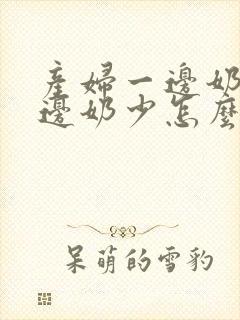 產婦一邊奶
邊奶少怎麼
呆萌的雪豹